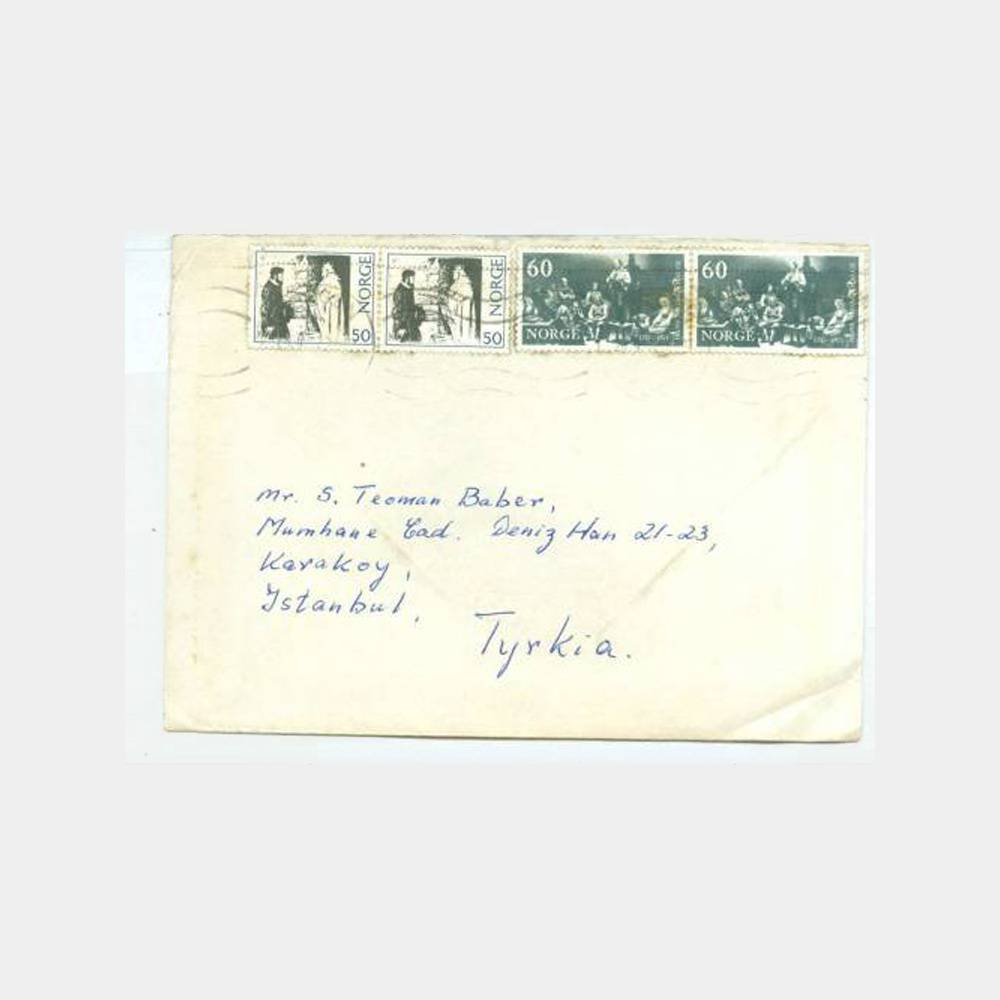 NORGE 50
NORGE 50
60
NORGE
60
NORGE
Mr. S. Teoman Baber,
Mumhane Cad. Deniz Han 21-23,
Karakoy,
Istanbul,
Tyrkia.